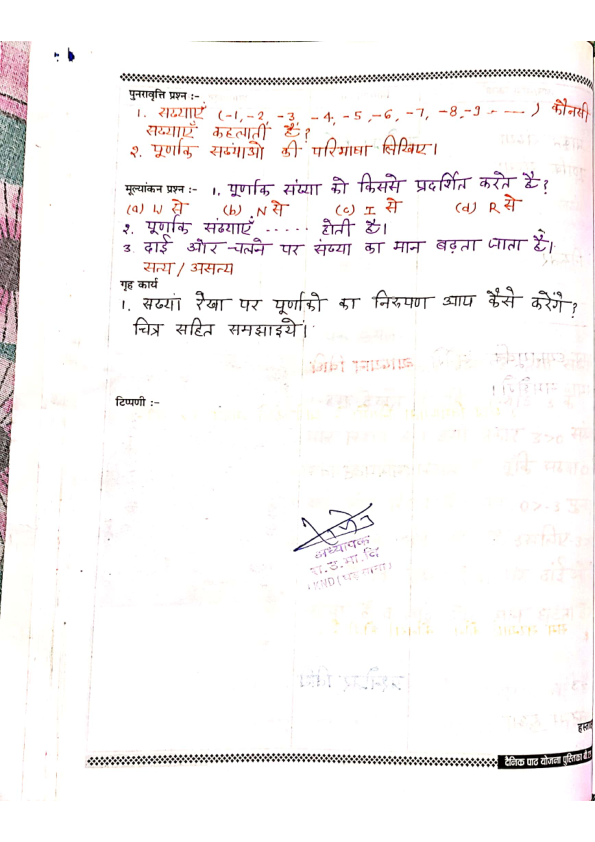 पुनरावृत्ति प्रश्न :-
1. सख्याएँ (-1,-2, -3, -4, -5, -6, -7, -8,-9 - - - - ) कौनसी
सख्याएँ कहलाती है?
2. पूर्णाक सख्याओ की परिभाषा लिखिए।
मूल्यांकन प्रश्न :- 1. पूर्णाक संख्या को किससे प्रदर्शित करते है?
(a) W से (b) N से (c) I से (d) R से
2. पूर्णाक सख्याएँ ...... होती है।
3. दाई ओर चलने पर संख्या का मान बढ़ता जाता है।
सत्य / असत्य
गृह कार्य
1. सख्या रेखा पर पूर्णाको का निरुपण आप कैसे करेंगे?
चित्र सहित समझाइये।
टिप्पणी :-
अध्यापक
रा.उ.मा.वि
दैनिक पाठ योजना पुस्तिका